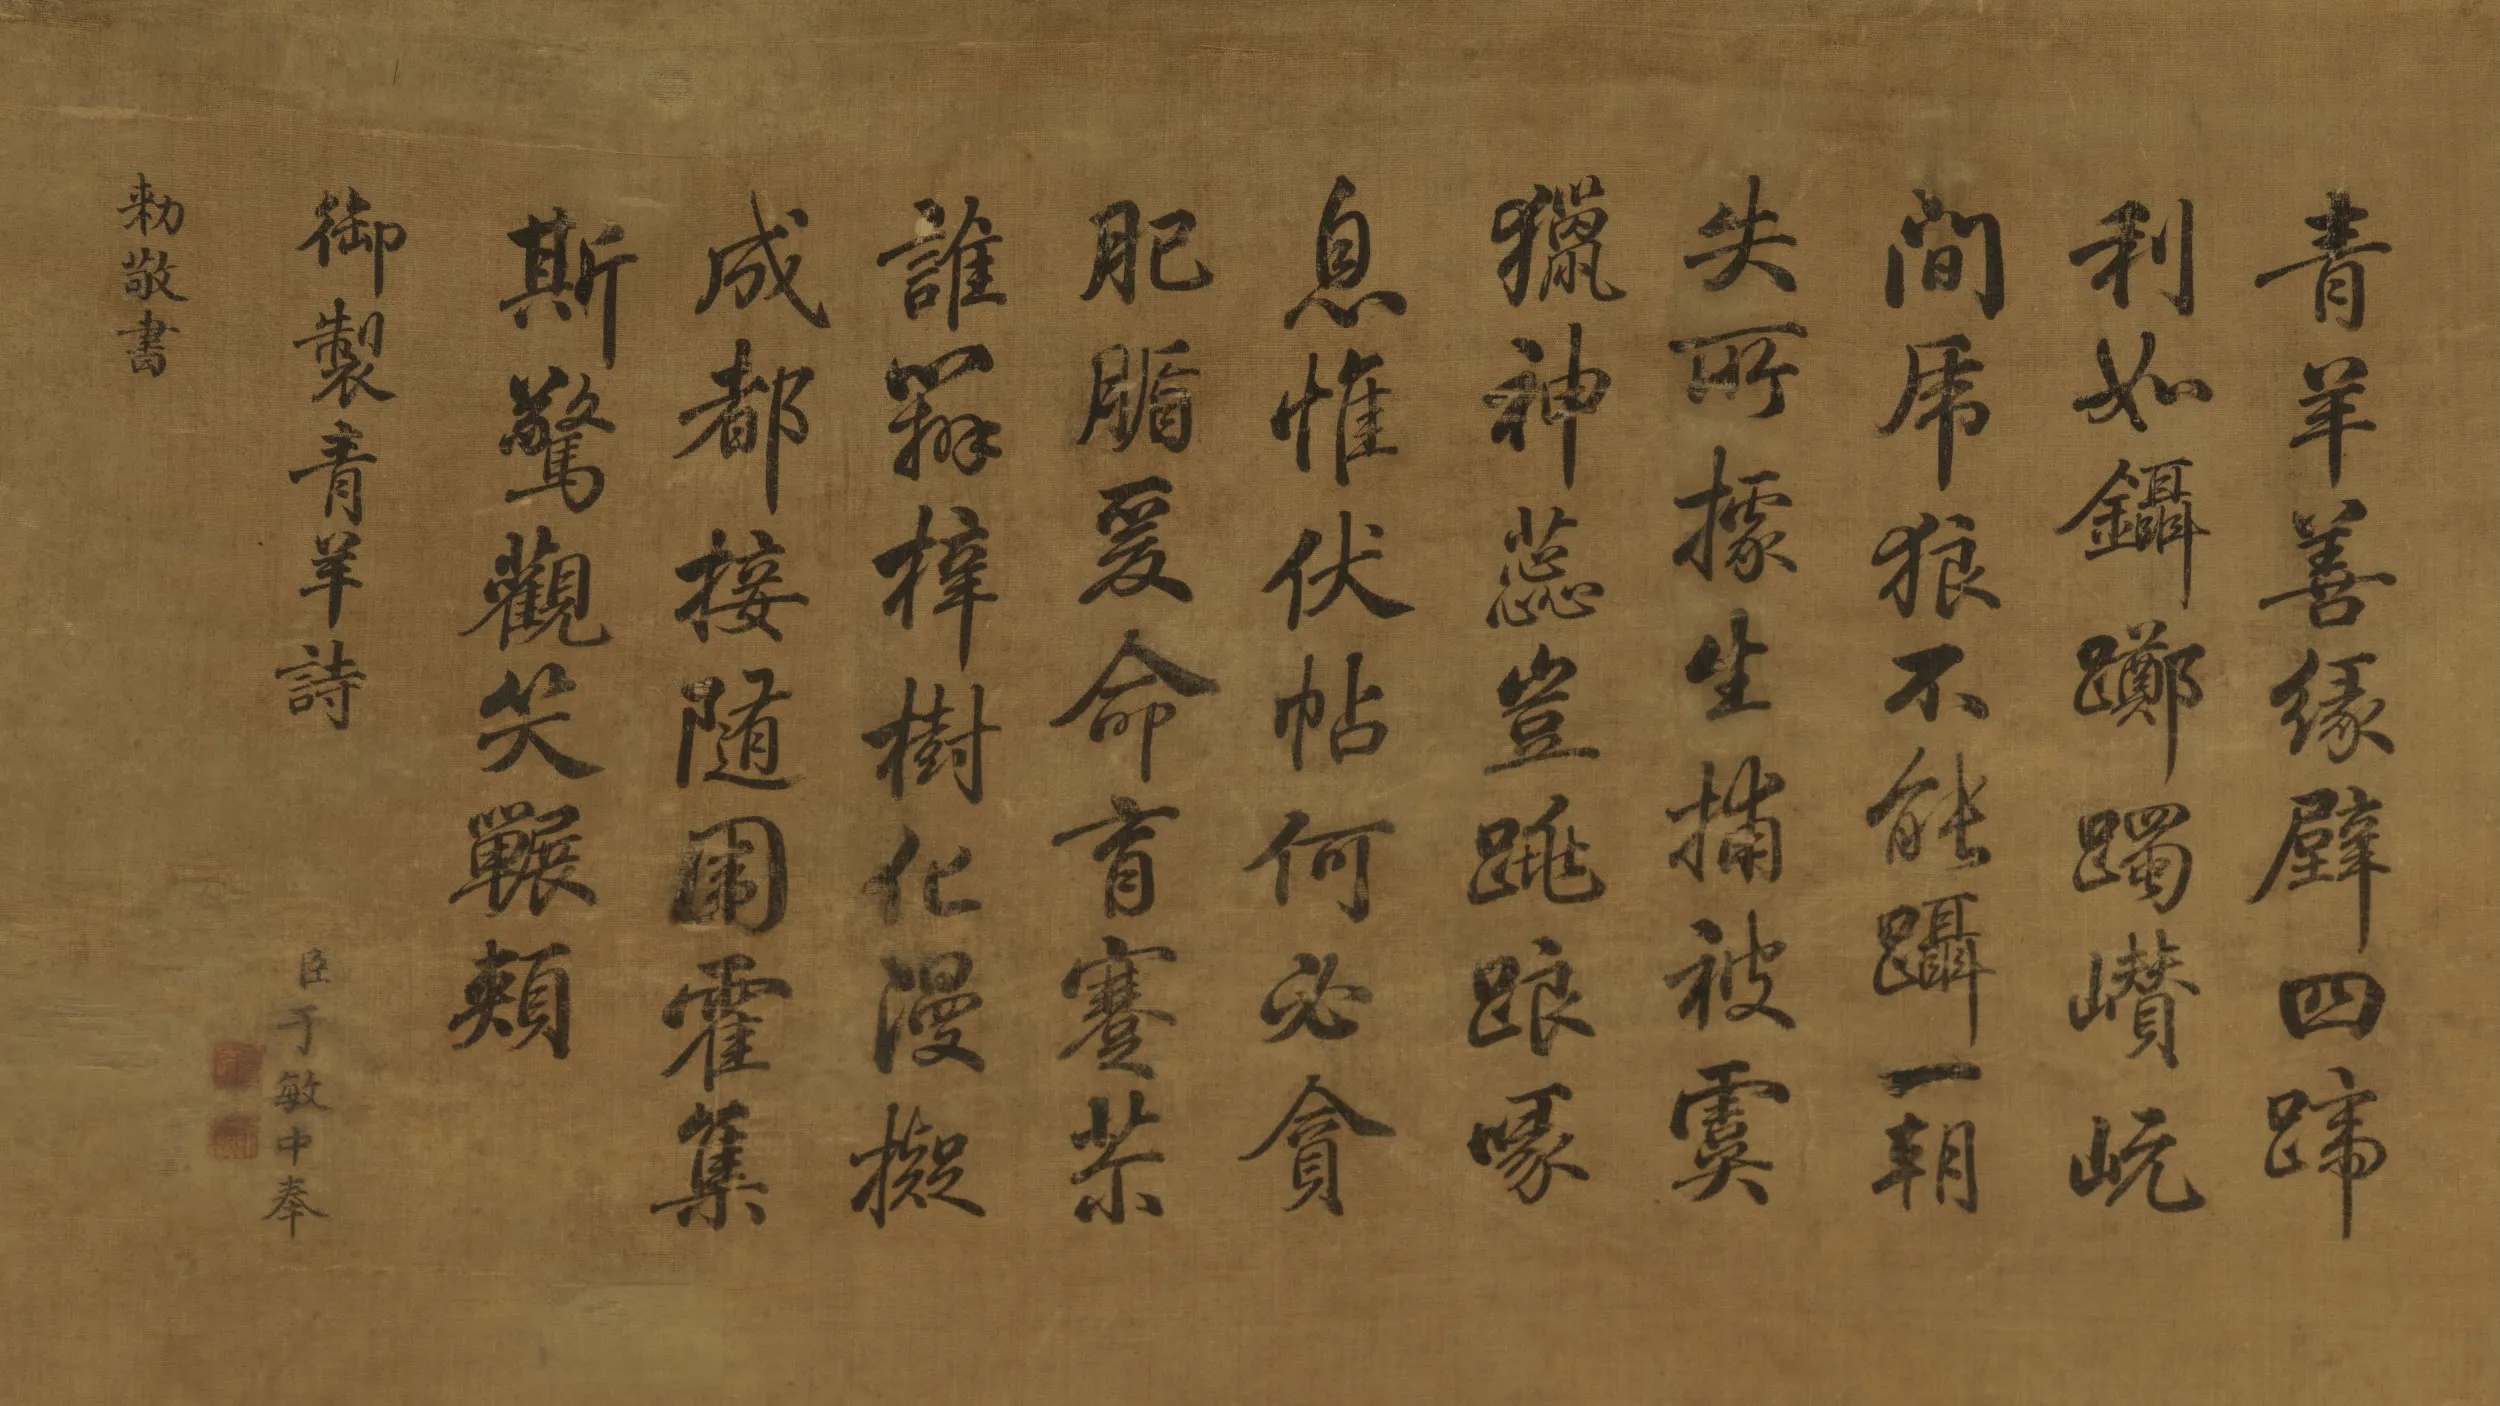 青羊善緣壁四蹄
利如鑷躑躅巑岏
間虎狼不能躡一朝
失所據生捕被虞
獵神蕊豈跳踉喙
息惟伏帖何必貪
肥腯爰命育蹇苶
誰辨梓樹化漫擬
成都接隨圍霍集
斯驚觀笑囅頰
御製青羊詩
臣于敏中奉
勅敬書